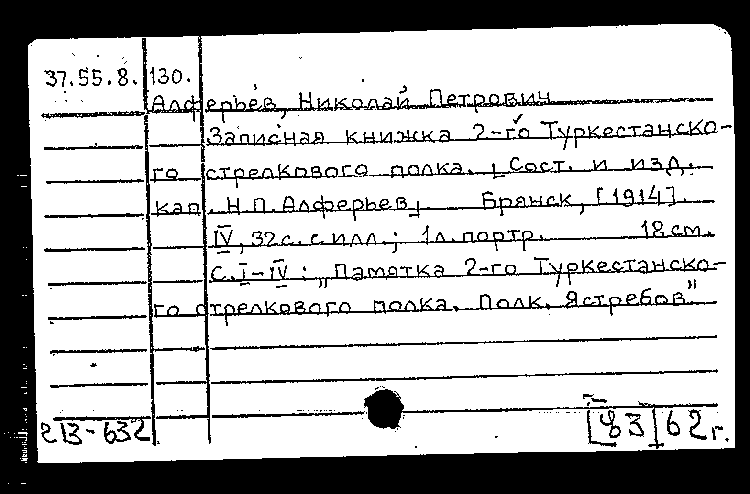 37.55.8. 130.
Алферьев, Николай Петрович
Записная книжка 2-го Туркестанско-
го стрелкового полка. [Сост. и изд.
кап. Н.П. Алферьев]. Брянск, [1914].
IV, 32 с. с илл.; 1 л. портр. 18 см.
С. I-IV: „Памятка 2-го Туркестанско-
го стрелкового полка. Полк. Ястребов"
213-632 [83] 62 г.